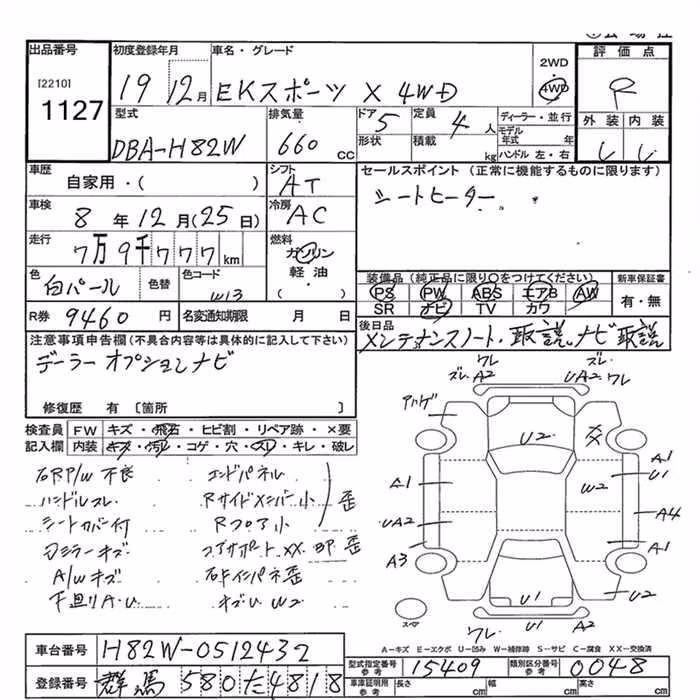 出品番号 初度登録年月 車名・グレード 評価点
[2210] 1127 19 12月 EKスポーツ X 4WD 2WD 4WD R
外装 内装
型式 排気量 ドア 5 定員 4人 ディーラー・並行
DBA-H82W 660CC 形状 積載 kg モデル年式 年 ハンドル 左・右
車歴 自家用・( ) シフト AT セールスポイント (正常に機能するものに限ります)
車検 8年12月(25日) 冷房 AC シートヒーター
走行 7万9千777km 燃料 ガソリン 軽油・( )
色 白パール 色替 色コード W13 装備品(純正品に限り○をつけてください) 新車保証書
PS PW ABS エアB AW 有・無
SR ナビ TV カワ
R券 9460円 名変通知期限 月 日 後日品 メンテナンスノート・取説、ナビ取説
注意事項申告欄(不具合内容等は具体的に記入して下さい)
デーラーオプションナビ
修復歴 有 〔箇所 〕
検査員 FW キズ・飛石・ヒビ割・リペア跡・×要
記入欄 内装 キズ・汚れ・コゲ・穴・スレ・キレ・破レ
右RP/W不良 エンドパネル
ハンドルスレ Rサイドメンバー小 歪
シートカバー付 Rフロア小
コアサポートXX 歪
A/Wキズ
下廻りA・U W2
ワレ ズレ
ズレ A2 UA2 ワレ
U2
A1
A1 W2 U1
UA2 A4
A3 A1
U2
スペア U1
ワレ U1 A2
A=キズ E=エクボ U=凹み W=補修跡 S=サビ C=腐食 XX=交換済
車台番号 H82W-0512432
登録番号 群馬 580た4818
型式指定番号 参考 15409 類別区分番号 参考 0048
車庫証明用 参考 長さ cm 幅 cm 高さ cm